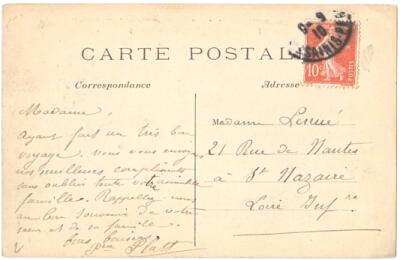 CARTE POSTALE
Correspondance
Adresse
10c
Madame,
Ayant fait un très bon
voyage, nous vous envoyons
nos meilleurs compliments
sans oublier toute votre aimable
famille. Rappelez nous
au bon souvenir de votre
sœur et de sa famille.
bons baisers
Madame
21 Rue de Nantes
à St Nazaire
Loire Infre